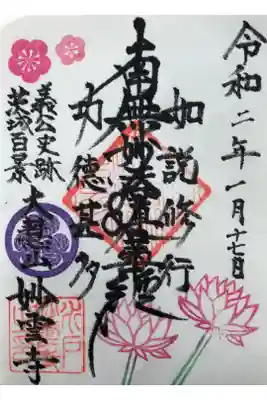 令和二年一月十七日
如説修行
南無妙法蓮華経
功徳甚多
義公史跡
茨城百景
大本山
妙雲寺
水戸